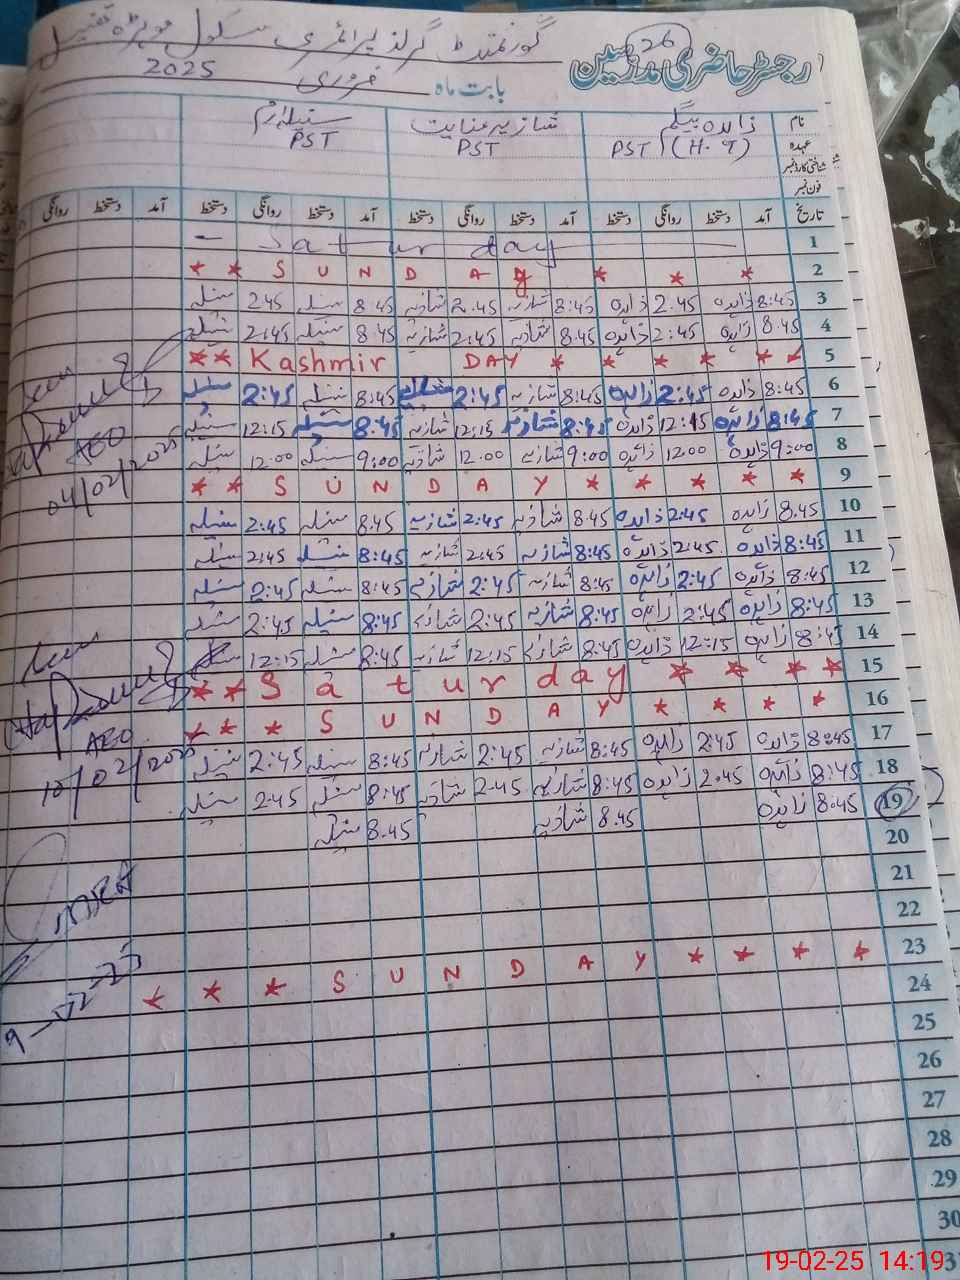 رجسٹر حاضری مدرسین 26
گورنمنٹ گرلز پرائمری سکول
بابت ماہ فروری 2025
نام زاہدہ بیگم شازیہ عنایت
عہدہ PST (H.T) PST PST
شناختی کارڈ نمبر
فون نمبر
تاریخ آمد دستخط روانگی دستخط آمد دستخط روانگی دستخط آمد دستخط روانگی دستخط آمد دستخط روانگی
1 Saturday
2 * * SUNDAY * * *
3 8:45 زاہدہ 2.45 زاہدہ 8:45 شازیہ 2.45 شازیہ 8.45 سنبلہ 2.45 سنبلہ
4 8.45 زاہدہ 2:45 زاہدہ 8.45 شازیہ 2:45 شازیہ 8.45 سنبلہ 2:45 سنبلہ
5 * * Kashmir DAY * * * * *
6 8:45 زاہدہ 2:45 زاہدہ 8:45 شازیہ 2:45 شازیہ 8:45 سنبلہ 2:45 سنبلہ
7 8:45 زاہدہ 12:15 زاہدہ 8:45 شازیہ 12:15 شازیہ 8:45 سنبلہ 12:15 سنبلہ
8 9:00 زاہدہ 12:00 زاہدہ 9:00 شازیہ 12.00 شازیہ 9:00 سنبلہ 12.00 سنبلہ
9 * * SUNDAY * * * *
10 8.45 زاہدہ 2:45 زاہدہ 8.45 شازیہ 2:45 شازیہ 8.45 سنبلہ 2:45 سنبلہ
11 8:45 زاہدہ 2:45 زاہدہ 8:45 شازیہ 2:45 شازیہ 8:45 سنبلہ 2:45 سنبلہ
12 8:45 زاہدہ 2:45 زاہدہ 8:45 شازیہ 2:45 شازیہ 8:45 سنبلہ 2:45 سنبلہ
13 8:45 زاہدہ 2:45 زاہدہ 8:45 شازیہ 2:45 شازیہ 8:45 سنبلہ 2:45 سنبلہ
14 8:45 زاہدہ 12:15 زاہدہ 8:45 شازیہ 12:15 شازیہ 8:45 سنبلہ 12:15 سنبلہ
15 * * Saturday * * * *
16 * * * SUNDAY * * * *
17 8:45 زاہدہ 2:45 زاہدہ 8:45 شازیہ 2:45 شازیہ 8:45 سنبلہ 2:45 سنبلہ
18 8:45 زاہدہ 2:45 زاہدہ 8:45 شازیہ 2:45 شازیہ 8:45 سنبلہ 2:45 سنبلہ
19 8:45 زاہدہ 8.45 شازیہ 8.45 سنبلہ
20
21
22
23 * * * SUNDAY * * * *
24
25
26
27
28
29
30
AEO
04/02/2025
AEO
10/02/2025
19-02-25 14:19